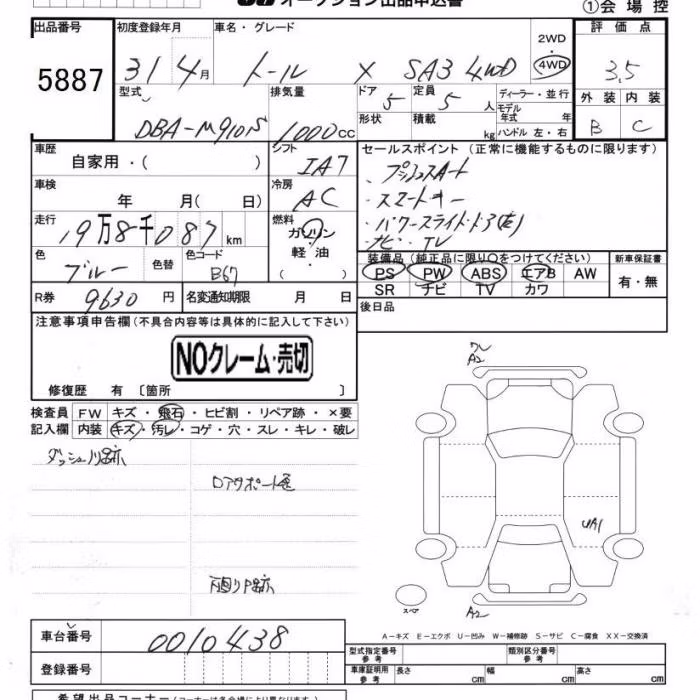 オークション出品申込書
①会場控
出品番号 初度登録年月 車名・グレード 評価点
5887
31 4月 トール X SA3 4WD
2WD
4WD
3.5
型式 排気量 ドア 定員 ディーラー・並行 外装 内装
5 5人 モデル年式 年
DBA-M910S 1000cc 形状 積載 kg ハンドル 左・右 B C
車歴 シフト セールスポイント (正常に機能するものに限ります)
自家用・( ) IA7
プッシュスタート
車検 冷房
スマートキー
年 月( 日) AC
走行 燃料
パワースライドドア(左)
19万8千087km ガソリン
ナビ・TV
軽油
色 色替 色コード 装備品(純正品に限り○をつけてください) 新車保証書
ブルー B67 PS PW ABS エアB AW 有・無
SR ナビ TV カワ
R券 9630円 名変通知期限 月 日 後日品
注意事項申告欄(不具合内容等は具体的に記入して下さい)
NOクレーム・売切
修復歴 有 〔箇所 〕
ワレ
A2
検査員 FW キズ・飛石・ヒビ割・リペア跡・×要
記入欄 内装 キズ・汚レ・コゲ・穴・スレ・キレ・破レ
ダッシュ川跡
UA1
下廻りP跡
スペア
A2
車台番号 0010438
A-キズ E-エクボ U-凹み W-補修跡 S-サビ C-腐食 XX-交換済
型式指定番号 参考 類別区分番号 参考
登録番号 車庫証明用 参考 長さ cm 幅 cm 高さ cm
希望出品コーナー(コーナーは各会場により異なります)